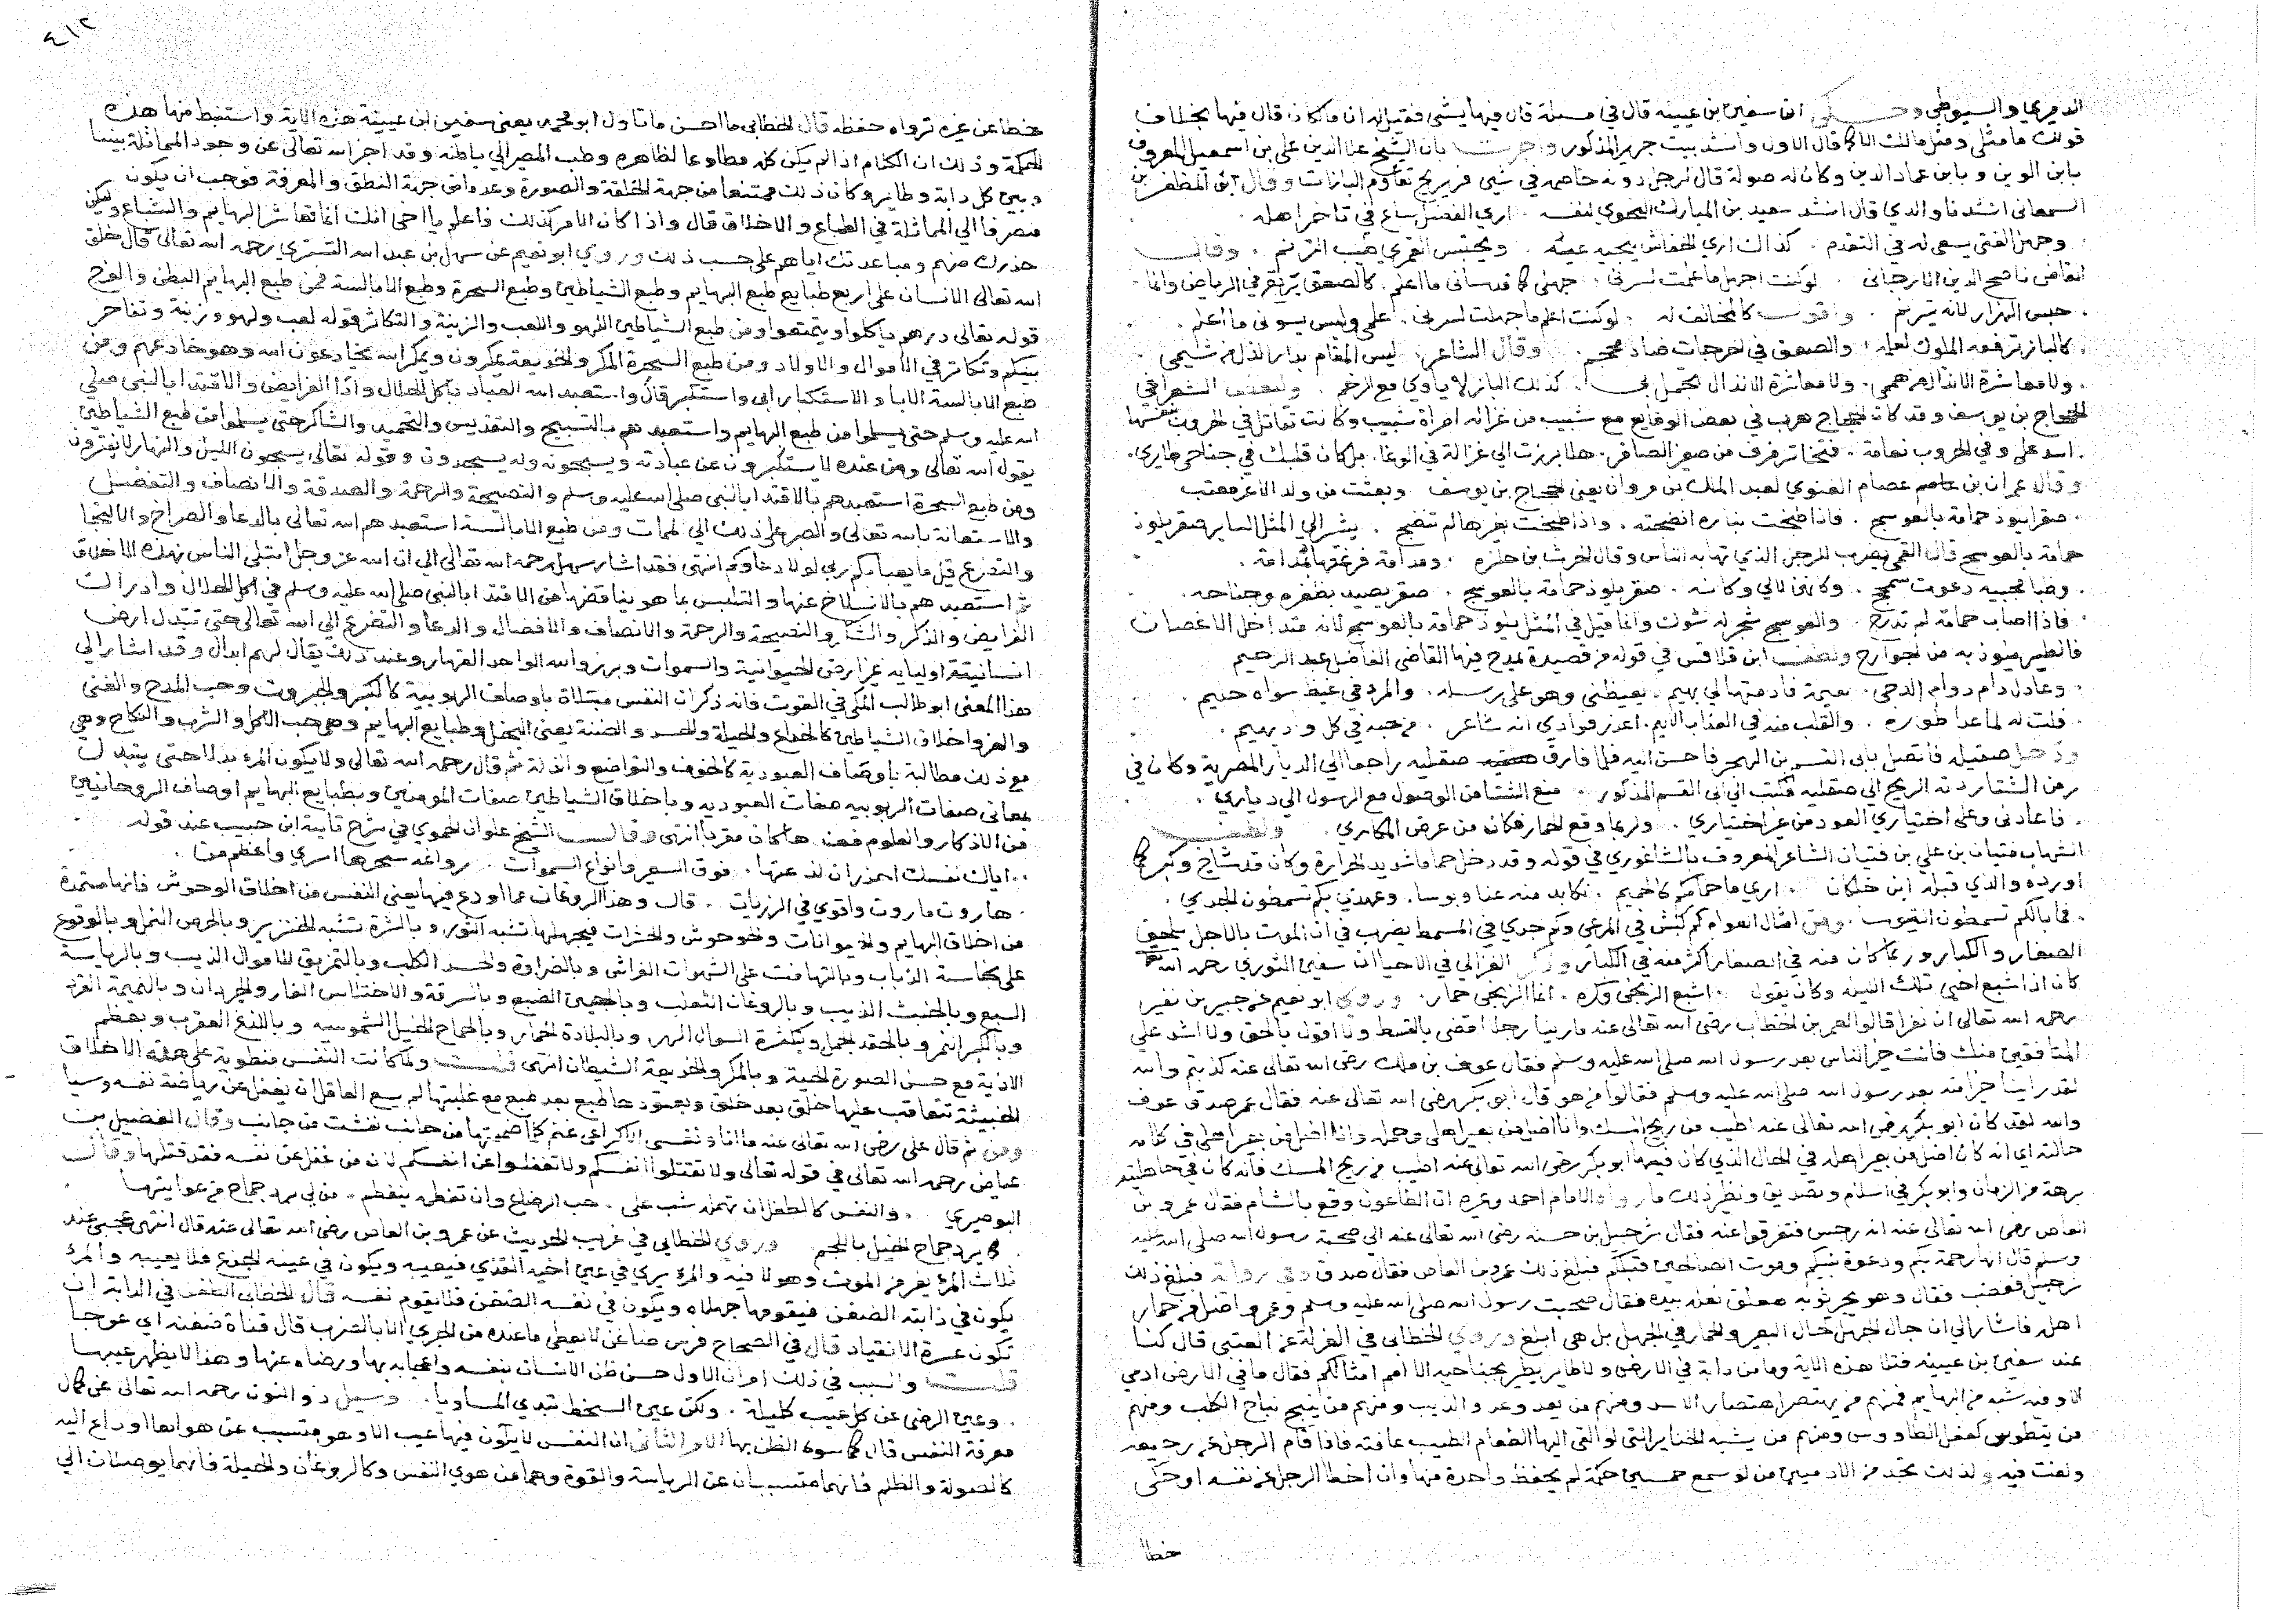 الدميري والسيوطي وحكى ان سفين بن عيينه قال في مسئلة قال فيها بشي فقيل له ان مالكا قال فيها بخلاف
قولك ما مثلى ومثل مالك الا كما قال الاول وانشد بيت جرير المذكور واخبرت بان الشيخ علا الدين علي بن اسمعيل المعروف
بابن الوين و بابن عماد الدين وكان له صولة قال لرجل دونه خاصمه في شي فريريج تقاوم البازات وقال ابو المظفر بن
السمعاني انشدنا والدي قال انشد سعيد بن المبارك النحوي لنفسه اري الفضل ساع في تاخر اهله
وجهل الفتى يسعى له في التقدم كذاك اري الخفاش يحبه عيبه ويحتبس القمري حب الترنم وقال
القاضي ناصح الدين الارجاني لو كنت اجهل ما علمت لسرني جهلى كما قد ساني ما اعلم كالصعو يرتع في الرياض وانما
حبس الهزار لانه يترنم واقول كالمخالف له لو كنت اعلم ما جهلت لسرني اعلم وليس يسوني ما اعلم
كالباز ترفعه الملوك لعلمه والصعو في الحرجات صاد محجم وقال الشاعر ليس المقام بدار الذل من شيمى
ولا معاشرة الانذال من هممى ولا معاشرة الانذال تجمل بى كذلك الباز لا ياوي مع الرخم ولبعض الشعرا في
الحجاج بن يوسف وقد كان الحجاج هرب في بعض الوقايع مع شبيب من غزاله امراة شبيب وكانت تقاتل في الحروب بنفسها
اسد علي وفي الحروب نعامة فتخا تنفر من صفير الصافر هلا برزت الي غزالة في الوغا بل كان قلبك في جناحى طاير
وقال عمران بن عصام العنزي لعبد الملك بن مروان يعنى الحجاج بن يوسف وبعثت من ولد الاغر معتب
صقرا يلوذ حمامه بالعوسج فاذا طبخت بناره انضجته واذا طبخت بغيرها لم تنضج يشير الي المثل الساير صقر يلوذ
حمامه بالعوسج قال القمي يضرب للرجل الذي تهابه الناس وقال الحرث بن حلزه ومدامة قرعتها بمدامة
وظبا محنيه ذعرت بسمحج وكانهن لالي وكانه صقر يلوذ حمامه بالعوسج صقر يصيد بظفره وجناحه
فاذا اصاب حمامة لم تدرج والعوسج شجر له شوك وانما قيل في المثل يلوذ حمامه بالعوسج لانه متداخل الاغصان
فالطير يلوذ به من الجوارح ولطف ابن قلاقس في قوله من قصيدة يمدح فيها القاضي الفاضل عبد الرحيم
وعادل دام دوام الدجى بهيمة نادمتها لي بهيم يغيظنى وهو على رسله والمرء في غيظ سواه حليم
قلت له لما عدا طوره والقلب منه في العذاب الاليم اعذر فوادي انه شاعر من حبه في كل واد يهيم
ودخل صقيله فاتصل بابى القسم بن الحجر فاحسن اليه فلما فارق صقليه راجعا الي الديار المصرية وكان في
زمن الشتا ردته الريح الي صقليه فكتب الي ابى القسم المذكور منع الشتا من الوصول مع الرسول الي دياري
فاعادنى وعلى اختياري العود من غير اختياري ولربما وقع الحمار وكان من غرض المكاري
الشهاب فتيان بن علي بن فتيان الشاعر المعروف بالشاغوري في قوله وقد دخل حماما شديد الحرارة وكان قد شاخ وكبر كما
اورده والذي قبله ابن خلكان اري ما حمامكم كالحميم نكابد منه عنا وبوسا وعهدي بكم تسمطون الجدي
فما بالكم تسمطون التيوسا ومن امثال العوام كم كبش في المرعى وكم جدي في المسمط يضرب في ان الموت بالاجل يلحق
الصغار والكبار وربما كان منه في الصغار اكثر منه في الكبار وذكر الغزالي في الاحيا ان سفين الثوري رحمه الله تعالى
كان اذا شبع احيى تلك الليله وكان يقول اشبع الزنجى وكده انما الزنجى حمار وروى ابو نعيم عن جبير بن نفير
رحمه الله تعالى ان نفرا قالوا لعمر بن الخطاب رضى الله تعالى عنه ما رينا رجلا اقضى بالقسط ولا اقول بالحق ولا اشد علي
المنافقين منك فانت خير الناس بعد رسول الله صلى الله عليه وسلم فقال عوف بن مالك رضى الله تعالى عنه كذبتم والله
لقد راينا خيرا منه بعد رسول الله صلى الله عليه وسلم فقالوا من هو قال ابو بكر رضى الله تعالى عنه فقال عمر صدق عوف
والله لقد كان ابو بكر رضى الله تعالى عنه اطيب من ريح المسك وانا اضل من بعير اهلى
حالته اي انه كان اضل من بعير اهله في الحال الذي كان فيها ابو بكر رضى الله تعالى عنه اطيب من ريح المسك فانه كان في جاهليته
برهة من الزمان وابو بكر في اسلام وتصديق ونظير ذلك ما رواه الامام احمد وغيره ان الطاعون وقع بالشام فقال عمرو بن
العاص رضى الله تعالى عنه انه رجس فتفرقوا عنه فقال شرحبيل بن حسنه رضى الله تعالى عنه اني صحبت رسول الله صلى الله عليه
وسلم قال انها رحمة بكم ودعوة نبيكم وموت الصالحين قبلكم فبلغ ذلك عمرو بن العاص فقال صدق وفي رواية فبلغ ذلك
شرحبيل فغضب فقال وهو يجر ثوبه معلق نعله بيده فقال صحبت رسول الله صلى الله عليه وسلم وعمرو اضل من حمار
اهله فاشار الي ان حال الجهل كحال البعير والحمار في الجهل بل هى ابلغ وروى الخطابي في العزلة عن العتبى قال كنا
عند سفين بن عيينه فتلا هذه الاية وما من دابة في الارض ولا طاير يطير بجناحيه الا امم امثالكم فقال ما في الارض ادمي
الا وفيه شبه من البهايم فمنهم من يهتصر اهتصار الاسد ومنهم من يعدو عدو الذيب ومنهم من ينبح نباح الكلب ومنهم
من يتطوس كفعل الطاووس ومنهم من يشبه الخنازير التى لو القى اليها الطعام الطيب عافته فاذا قام الرجل عن رجيعه
ولغت فيه ولذلك تجد من الادميين من لو سمع خمسين حكمة لم يحفظ واحدة منها وان اخطا الرجل عن نفسه او حكى
خطا
٤١٢
خطا عن غيره ترواه حفظه قال الخطابي ما احسن ما تاول ابو محمد يعنى سفين ابن عيينة هذه الاية واستنبط منها هذه
الحكمة وذلك ان الكلام اذا لم يكن كله مطاوعا لظاهره وطب المصير الي باطنه وقد اخبر الله تعالى عن وجود المماثلة بيننا
وبين كل دابة وطاير وكان ذلك ممتنعا من جهة الخلقة والصورة وعدما من جهة النطق والمعرفة فوجب ان يكون
منصرفا الي المماثلة في الطباع والاخلاق قال واذا كان الامر كذلك فاعلم يا اخى انك انما تعاشر البهايم والسباع وليكن
حذرك منهم ومباعدتك اياهم على حسب ذلك وروي ابو نعيم عن سهل بن عبد الله التستري رحمه الله تعالى قال خلق
الله تعالى الانسان على اربع طبايع طبع البهايم وطبع الشياطين وطبع السحرة وطبع الابالسة فمن طبع البهايم البطن والفرج
قوله تعالى ذرهم ياكلوا ويتمتعوا ومن طبع الشياطين اللهو واللعب والزينة والتكاثر قوله لعب ولهو وزينة وتفاخر
بينكم وتكاثر في الاموال والاولاد ومن طبع السحرة المكر والخديعة يمكرون ويمكر الله يخادعون الله وهو خادعهم ومن
طبع الابالسة الابا والاستكبار ابى واستكبر قال واستعبد الله العباد باكل الحلال واذا الفرايض والاقتدا بالنبى صلى
الله عليه وسلم حتى يسلموا من طبع البهايم واستعبدهم بالتسبيح والتقديس والتحميد والشكر حتى يسلموا من طبع الشياطين
بقوله الله تعالى ومن عنده لا يستكبرون عن عبادته ويسبحونه وله يسجدون وقوله تعالى يسبحون الليل والنهار لا يفترون
ومن طبع السحرة استعبدهم بالاقتدا بالنبى صلى الله عليه وسلم والنصيحة والرحمة والصدقة والانصاف والتفضل
والاستعانة بالله تعالى والصبر على ذلك الي الممات ومن طبع الابالسة استعبدهم الله تعالى بالدعا والصراخ والالتجا
والتضرع قل ما يعبا بكم ربى لولا دعاوكم انتهى فقد اشار سهل رحمه الله تعالى الي ان الله عز وجل ابتلى الناس بهذه الاخلاق
ثم استعبدهم بالانسلاخ عنها والتلبس بما هو يناقضها من الاقتدا بالنبى صلى الله عليه وسلم في اكل الحلال واداء
الفرايض والذكر والشكر والنصيحة والرحمة والانصاف والافضال والدعا والتضرع الي الله تعالى حتى تتبدل ارض
انسانيته اوليايه غير ارض الحيوانية والسموات وبرزوا لله الواحد القهار وعند ذلك يقال لهم ابدال وقد اشار الي
هذا المعنى ابو طالب المكى في القوت فانه ذكر ان النفس مبتلاة باوصاف الربوبية كالكبر والجبروت وحب المدح والغنى
والعز واخلاق الشياطين كالخداع والحيلة والحسد والضنة يعنى البخل وطبايع البهايم وهو حب الاكل والشرب والنكاح وهي
مع ذلك مطالبة باوصاف العبودية كالخوف والتواضع والذلة ثم قال رحمه الله تعالى ولا يكون المريد بدلا حتى يتبدل
بمعاني صفات الربوبيه صفات العبوديه وباخلاق الشياطين صفات المومنين وبطبايع البهايم اوصاف الروحانيين
من الاذكار والعلوم فعند هذا كان مقربا انتهى وقال الشيخ علوان الحموي في شرح تايية ابن حبيب عند قوله
اياك نفسك احذر ان لدغتها فوق السعير وانواع السموات رواغه سحرها اسري واعظم من
هاروت ماروت واقوي في الرزيات قال وهذا الروغات عما اودع فيها يعنى النفس من اخلاق الوحوش فانها مستمدة
من اخلاق البهايم والحيوانات ونحو وحوش والحشرات فبجهلها تشبه الثور وبالشره تشبه الخنزير وبالحرص النمل وبالوقوع
على نجاسة الذباب وبالتهافت على الشهوات الفراش وبالضراوة والحسد الكلب وبالتمزيق للاموال الذيب وبالرياسة
السبع وبالخبث الذيب وبالروغان الثعلب وبالحمق الضبع وبالسرقة والاختلاس الفار والجرذان وبالنميمة القرد
وبالكبر النمر وبالحقد الجمل وبكثرة السوال الهر وبالبلادة الحمار وبالجماح الخيل الشموسه وباللدغ العقرب وبعظم
الاذية مع حسن الصورة الحية وبالمكر والخديعة الشيطان انتهى قلت ولما كانت النفس منطوية على هذه الاخلاق
الخبيثة تتعاقب عليها خلق بعد خلق ويعتورها طبع بعد طبع مع غلبتها لم يسع العاقل ان يغفل عن رياضة نفسه وسيا
ومن ثم قال على رضى الله تعالى عنه ما انا ونفسى الا كراعى غنم كلما ضمها من جانب نفشت من جانب وقال الفضيل بن
عياض رحمه الله تعالى في قوله تعالى ولا تقتلوا انفسكم ولا تغفلوا عن انفسكم لان من غفل عن نفسه فقد قتلها وقال
البوصيري والنفس كالطفل ان تهمله شب على حب الرضاع وان تفطمه ينفطم من لي برد جماح من غوايتها
كما يرد جماح الخيل باللجم وروى الخطابي في غريب الحديث عن عمرو بن العاص رضى الله تعالى عنه قال انتهى عجبى عند
ثلاث المرء يفر من الموت وهو لاقيه والمرء يري في عين اخيه القذي فيعيبه ويكون في عينه الجذع فلا يعيبه والمرء
يكون في دابته الضغن فيقومها جهده ويكون في نفسه الضغن فلا يقوم نفسه قال الخطابي الضغن في الدابة ان
تكون عسرة الانقياد قال في الصحاح فرس ضاغن لا يعطى ما عنده من الجري الا بالضرب قال قناة ضغنه اي عوجا
قلت والسبب في ذلك امران الاول حسن ظن الانسان بنفسه واعجابه بها ورضاه عنها وهذا لا يظهر عيبها
وعين الرضى عن كل عيب كليلة ولكن عين السخط تبدي المساويا وسيل ذو النون رحمه الله تعالى عن كمال
معرفة النفس قال كما سوء الظن بها الامر الثاني ان النفس لا يكون فيها عيب الا وهو متسبب عن هواها او داع اليه
كالصولة والظلم فانهما متسببان عن الرياسة والقوة وهما من هوي النفس وكالروغان والحيلة فانهما يوصلان الي